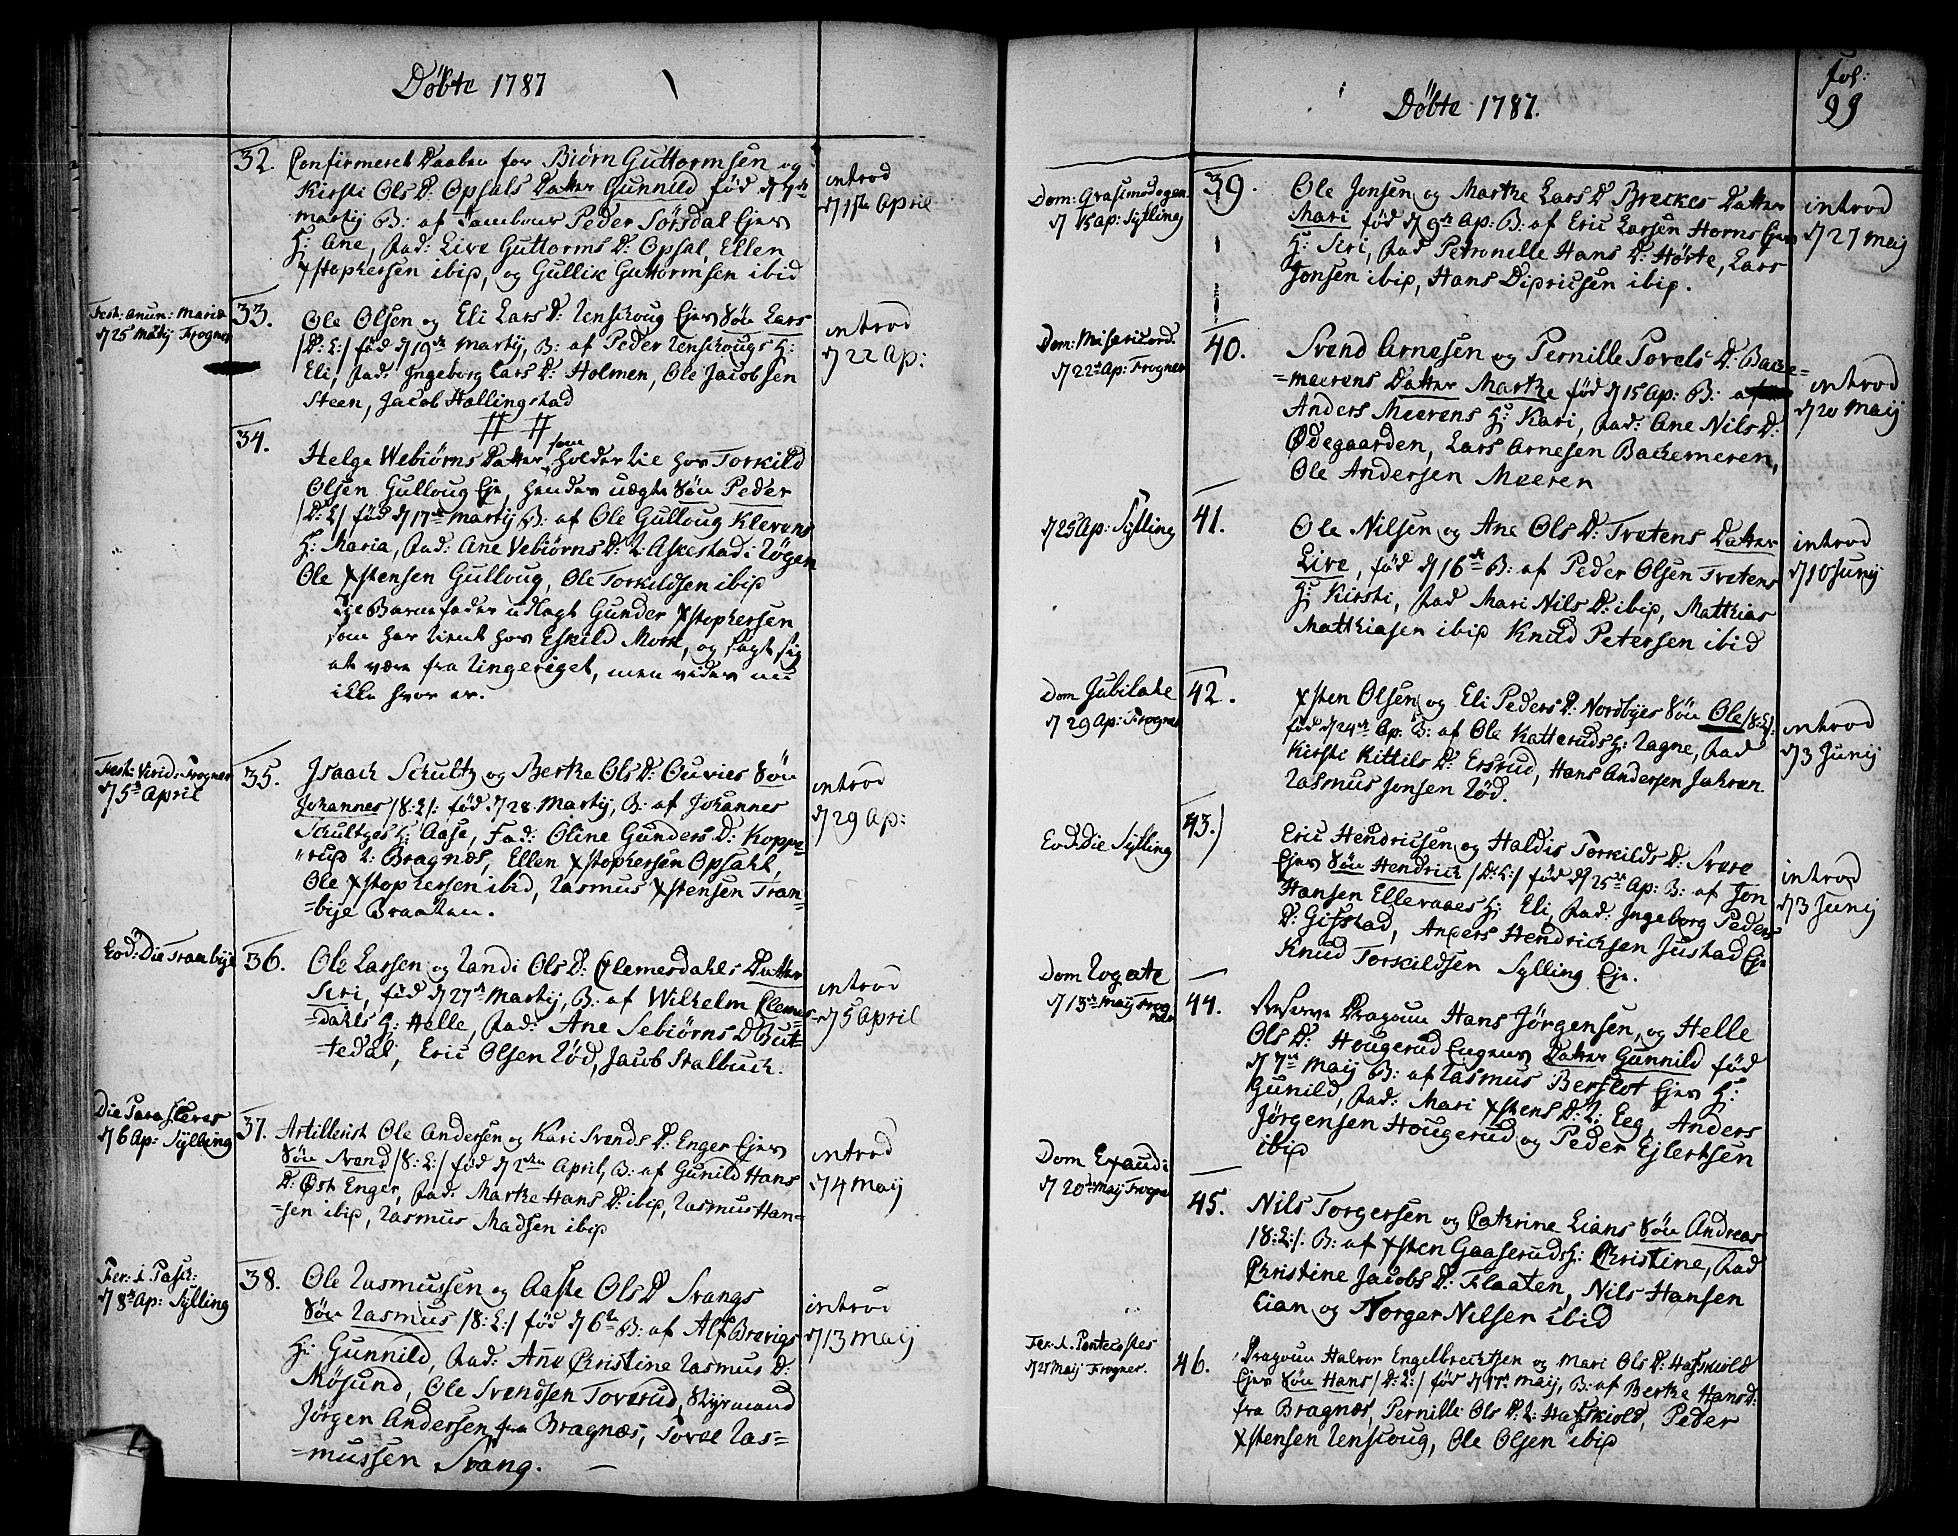 Döbte 1787
32. Confirmeret Daaben for Biørn Guttormsen og
Kirsti Ols D: Opsals Datter Gunnild fød d 7de
Martij B: af Tambour Peder Sörsdal Ejers
H: Ane, Fad: Live Guttorms D: Opsal, Ellen
Xstophersen ibid, og Gullik Guttormsen ibid
introd
d 1ste April
Fest: anun: Mariæ
d 25 Martij Frogner
33. Ole Olsen og Eli Lars D: Renskoug Ejers Søn Lars
/D: L:/ fød d 19de Martij, B: af Peder Renskougs H:
Eli, Fad: Ingeborg Lars D: Holmen, Ole Jacobsen
Steen, Jacob Hallingstad
introd
d 22 Ap:
34.
Helge Webiørns Datter som holder til hos Torkild
Olsen Gulloug Eje, hendes uægte Søn Peder
/D: L:/ fød d 17de Martij B: af Ole Gulloug Klevens
H: Maria, Fad: Ane Vebiørns D: R: Askestad i Røgen
Ole Xstensen Gulloug, Ole Torkildsen ibid
Til Barnefader udlagt Gunder Xstophersen
som har tient hos Eskild Mork, og sagt sig
at være fra Ringeriget, men vides nu
ikke hvor er.
Fest: Virid: Frogner
d 5te April
35. Isaach Schultz og Berthe Ols D: Ouvies Søn
Johannes /8: L:/ fød d 28 Martij, B: af Johannes
Schultzes H: Aase, Fad: Oline Gunders D: Koppe-
rud R: Bragnæs, Ellen Xstophersen Opsahl,
Ole Xstophersen ibid, Rasmus Xstensen Tran-
=bye Braaten.
introd
d 29 Ap:
Eod: Die Tranbye
36. Ole Larsen og Randi Ols D: Clemesdahls Datter
Siri, fød d 27de Martij, B: af Wilhelm Clemes-
=dahls H: Helle, Fad: Ane Sebiørns D But-
=tedal, Eric Olsen Rød, Jacob Stalbuck.
introd
d 5 April
Die Parasceves
d 6 Ap: Sylling
37. Artillerist Ole Andersen og Kari Svends D: Enger Ejers
Søn Svend /8: L:/ fød d 2den April, B: af Gunild Hans
D: Øst Enger, Fad: Marthe Hans D: ibid, Rasmus Han-
=sen ibid, Rasmus Madsen ibid
introd
d 4 Maij
Fer: 1 Pasch:
d 8de Ap: Sylling
38. Ole Rasmussen og Aaste Ols D Svangs
Søn Rasmus /8: L:/ fød d 6te B: af Alf Brevigs
H: Gunnild, Fad: Ane Christine Rasmus D:
Møsund, Ole Svendsen Toverud, Styrmand
Jörgen Andersen fra Bragnæs, Tovel Ras=
=mussen Svang.
introd
d 13 Maij
Döbte 1787.
Fol:
99
Dom: Qvasimodogen
d 15 Ap: Sylling
39. Ole Jonsen og Marthe Lars D Breckes Datter
Mari fød d 9de Ap: B: af Eric Larsen Horns Ejers
H: Siri, Fad Petronelle Hans D: Hørte, Lars
Jonsen ibid, Hans Didricsen ibid.
introd
d 27 Maij
Dom: Misericord.
d 22de Ap: Frogner
40. Svend Arnesen og Pernille Povels D: Backe-
=meerens Datter Marthe fød d 15 Ap: B: af
Anders Meerens H: Kari, Fad: Ane Nils D:
Ødegaarden, Lars Arnesen Backemeren,
Ole Andersen Meeren
introd
d 20 Maij
d 25 Ap: Sylling
41. Ole Nilsen og Ane Ols D: Tvetens Datter
Live, fød d 16de B: af Peder Olsen Tvetens
H: Kirsti, Fad Mari Nils D: ibid, Matthias
Matthiasen ibid Knud Petersen ibid
introd
d 10 Junij
Dom Jubilate
d 29 Ap: Frogner
42. Xsten Olsen og Eli Peders D: Nordbyes Søn Ole /8: L:/
fød d 24de Ap: B: af Ole Katteruds H: Ragne, Fad
Kirsti Kittils D: Eserud, Hans Andersen Jahren
Rasmus Jonsen Rød.
introd
d 3 Junij
Eod: Die Sylling
43.) Eric Hendricsen og Haldis Torkilds D: Svere
Ejers Søn Hendrick /D: L:/ fød d 25de Ap: B: af Jon
Hansen Ellevaaes H: Eli, Fad: Ingeborg Peders
D: Gifstad, Anders Hendrichsen Justad Eje
Knud Torkildsen Sylling Eje.
introd
d 3 Junij
Dom Rogate
d 13de Maij Frog
ner
44. Reserve Dragoun Hans Jørgensen, og Helle
Ols D: Hougerud Engens Datter Gunnild fød
d 7de Maij B: af Rasmus Berslot Ejers H:
Gunild, Fad: Mari Xstens D: R: Eeg, Anders
Jørgensen Hougerud og Peder Ejlertsen
ibid
Dom Exaudi
d 20de Maij Frogne
45. Nils Torgersen og Cathrine Lians Søn Andreas
/8: L:/. B: af Xsten Gaaseruds H: Christine, Fad
Christine Jacobs D: Flaaten, Nils Hansen
Lian og Torger Nilsen ibid
Fer: 1. Pentecostes
d 27 Maij Frogner.
46. Dragoun Halvor Engelbrechtsen og Mari Ols D: Hafskiold
Ejers Søn Hans /D: L:/ fød d 17de Maij, B: af Berthe Hans D:
fra Bragnæs, Pernille Ols D: R: Hafskiold, Peder
Xstensen Renskoug, Ole Olsen ibid